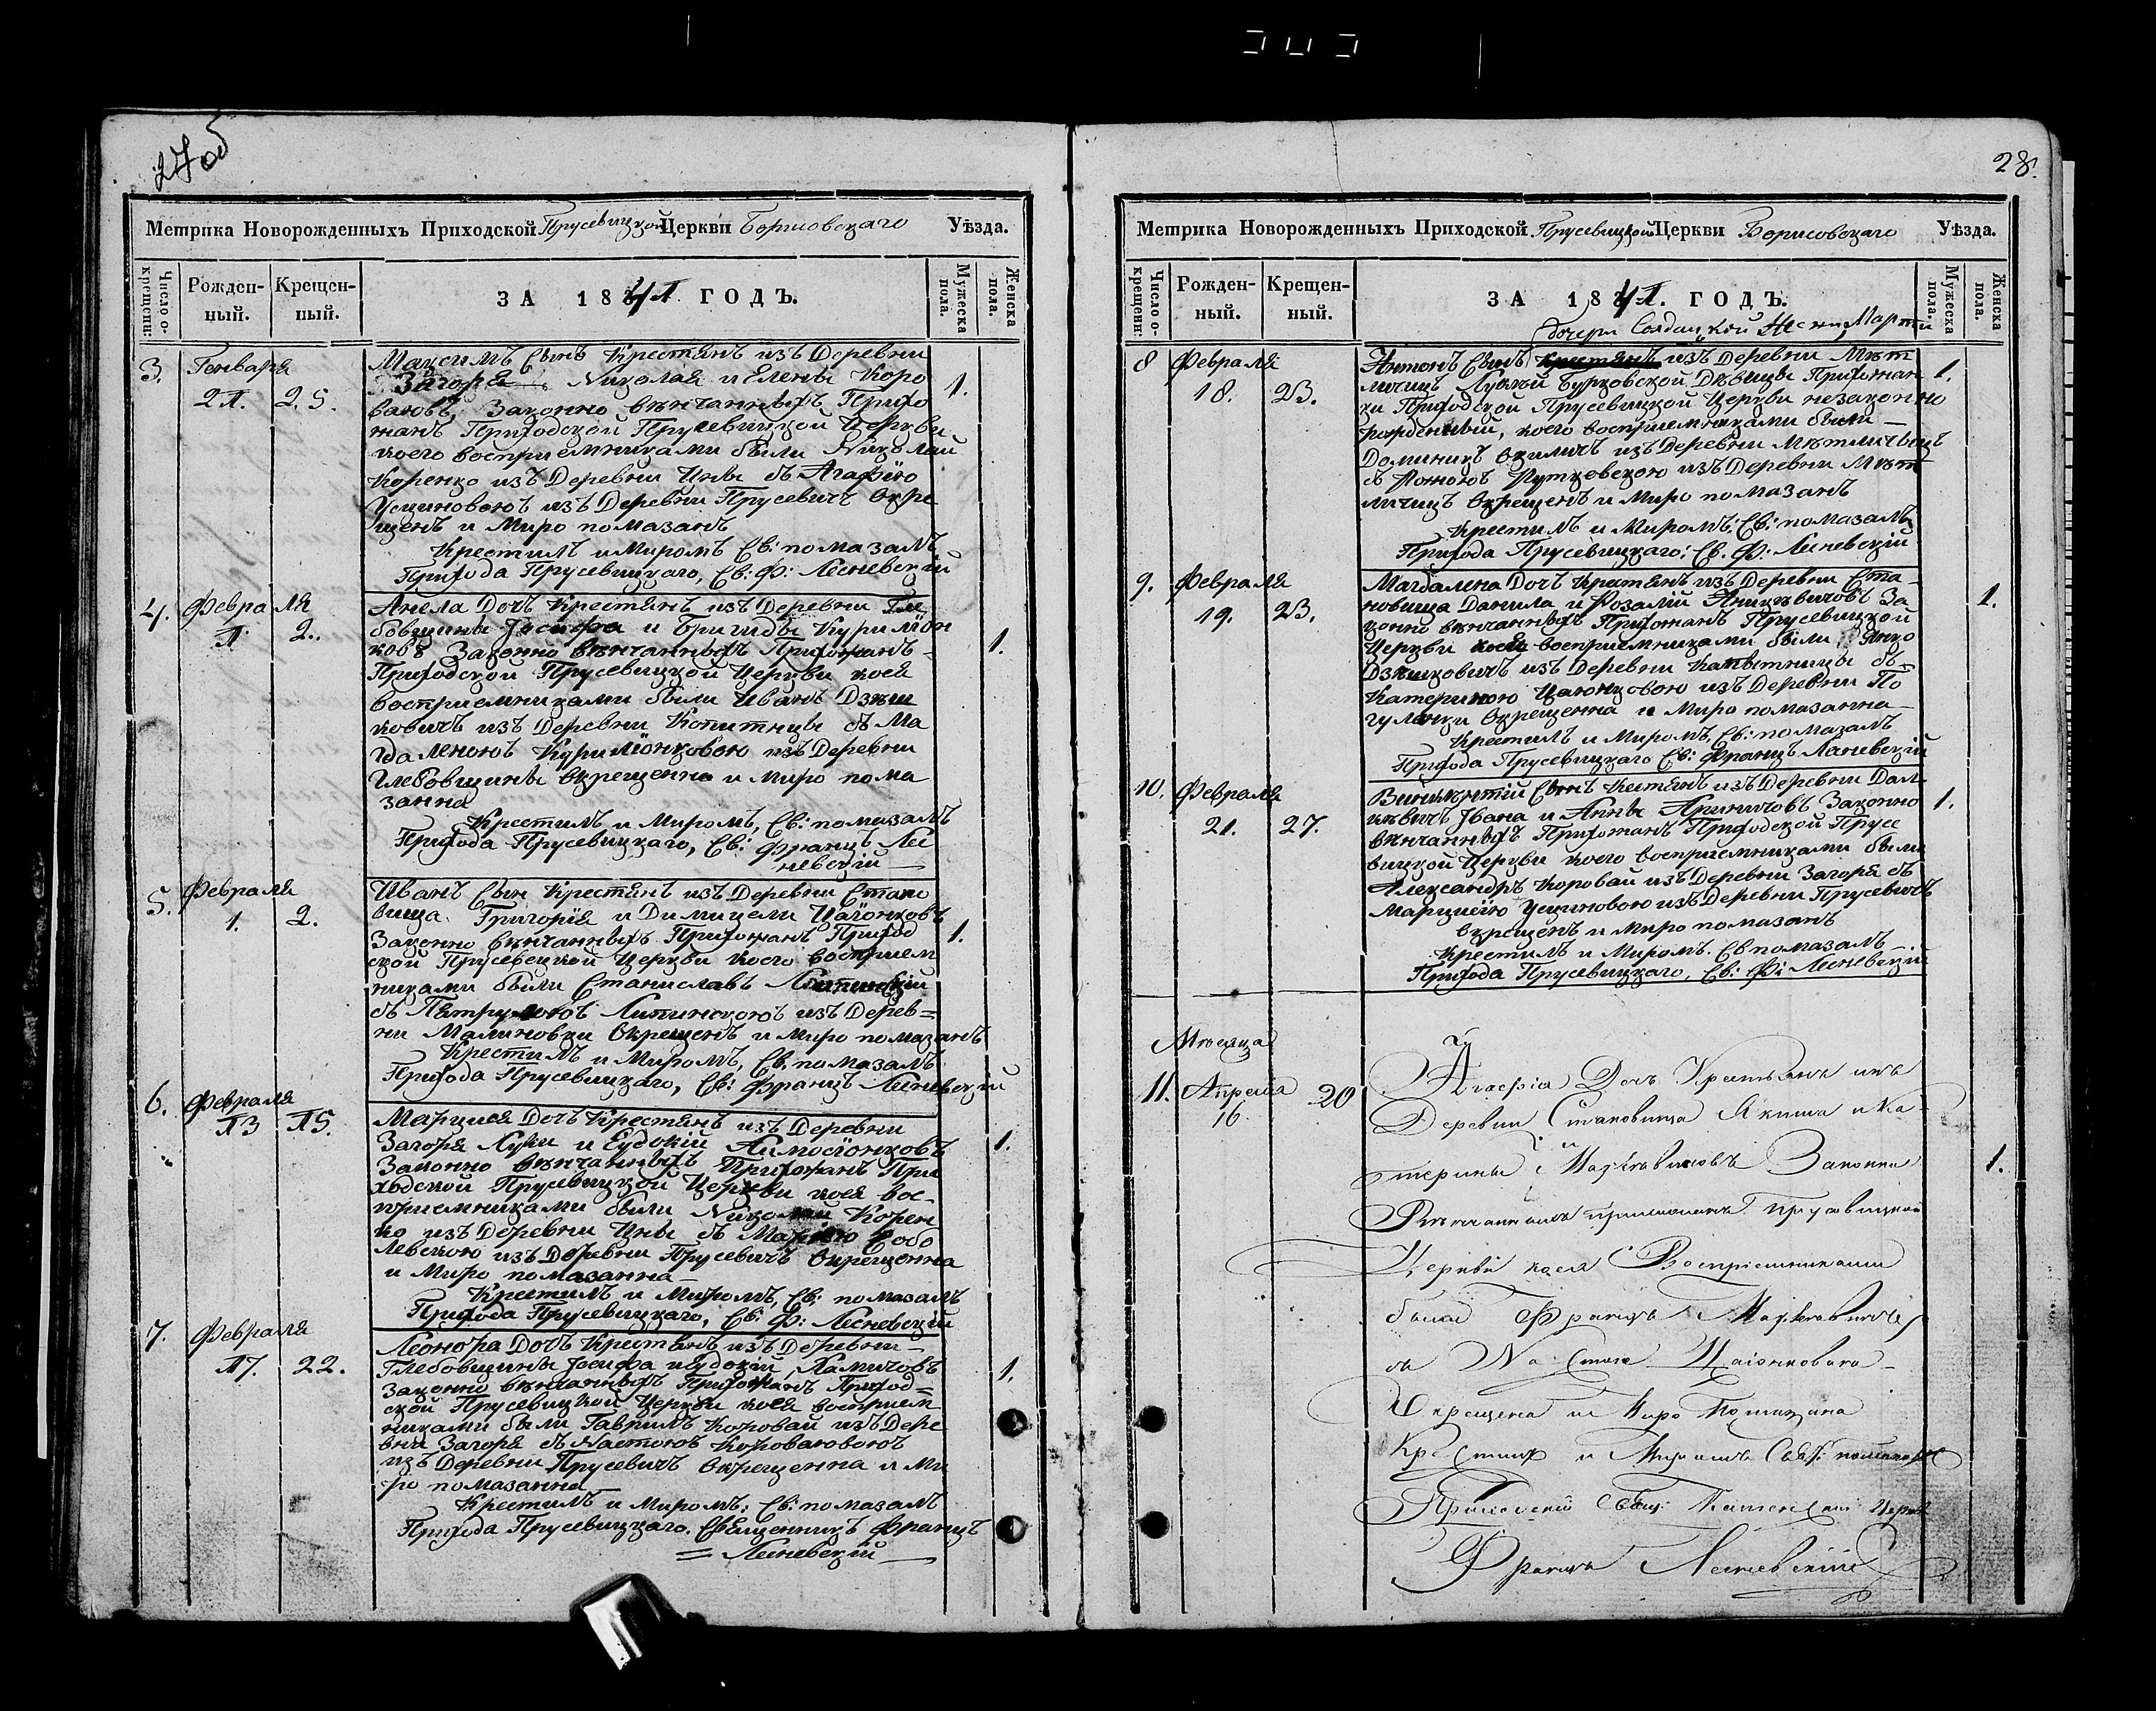 27об
Метрика Новорожденныхъ Приходской Прусевицкой Церкви Борисовскаго Уѣзда.
Число о-
крещенн:
Рожден-
ный.
Крещен-
ный.
ЗА 1841 ГОДЪ.
Мужеска
пола.
Женска
пола.
3. Генваря
21. 25.
Максимъ Сынъ Крестянъ изъ Деревни
Загоря Николая и Елены Коро
ваювъ, Законно вѣнчанныхъ Прихо
жанъ Приходской Прусевицкой Церкви
коего восприемниками были Николай
Коренко изъ Деревни Цны съ Агафіею
Усциновою изъ Деревни Прусевичъ Окре
щенъ и Миро помазанъ
Крестилъ и Миромъ Св: помазалъ
Прихода Прусевицкаго, Св: Ф: Лесневскій
1.
4. Февраля
1. 2.
Анела Дочъ Крестянъ изъ Деревни Гле
бовщины Іосифа и Бригиды Курилюн
ковъ Законно вѣнчанныхъ Прихожанъ
Приходской Прусевицкой Церкви коея
восприемниками были Иванъ Дзѣш
ковичъ изъ Деревни Копитницы съ Ма
гдаленою Курилюнковою изъ Деревни
Глебовщины Окрещенна и Миро пома
занна
Крестилъ и Миромъ, Св: помазалъ
Прихода Прусевицкаго, Св: Францъ Лес
невскій
1.
5. Февраля
1. 2.
Иванъ Сын Крестянъ изъ Деревни Стано
вища Григорія и Димицели Цаюнковъ
Законно вѣнчанныхъ Прихожанъ Приход
ской Прусевецкой Церкви коего восприем
никами были Станиславъ
съ Литинскоюъ изъ Дерев=
ни Малиновки Окрещенъ и Миро помазанъ
Крестилъ и Миромъ, Св. помазалъ
Прихода Прусевицкаго, Св: Францъ Лесневскій
1.
6. Февраля
13 15.
Марцыя Дочъ Крестянъ изъ Деревни
Загоря Луки и Еудокіи
Законно вѣнчанныхъ Прихожанъ При
ходской Прусевицкой Церкви коея вос-
приемниками были Николай Корен
ко изъ Деревни Цны съ Соба
левскою изъ Деревни Прусевичъ Окрещенна
и Миро помазанна
Крестилъ и Миромъ, Св: помазалъ
Прихода Прусевицкаго, Св: Ф: Лесневскій
1.
7. Февраля
17. 22.
Леонора Дочъ Крестянъ изъ Деревни
Глебовщины Іосифа и Еудокіи
Законно вѣнчанныхъ Прихожанъ Приход=
ской Прусевицкой Церкви коея восприем
никами были Гаврилъ Коровай изъ Дере
вни Загоря съ Настоюъ Короваювоюъ
изъ Деревни Прусевичъ Окрещенна и Ми
ро помазанна
Крестилъ и Миромъ: Св: помазалъ
Прихода Прусевицкаго. Священникъ Францъ
= Лесневскій
1.
28.
Метрика Новорожденныхъ Приходской Прусевицкой Церкви Борисовскаго Уѣзда.
Число о-
крещенн:
Рожден-
ный.
Крещен-
ный.
ЗА 1841. ГОДЪ.
Мужеска
пола.
Женска
пола.
Дочери Солдацкой
8 Февраля
18. 23.
Антонъ Сынъ Крестянъ изъ Деревни Мѣт
личицъ Бурковской Дѣвицы Прихожан
ки Приходской Прусевицкой Церкви незаконно
рожденный, коего восприемниками были
Доминикъ изъ Деревни Мѣтличицъ
съ Рутковскою изъ Деревни Мѣт
личицъ Окрещенъ и Миро помазанъ
Крестилъ и Миромъ: Св: помазалъ
Прихода Прусевицкаго: Св. Ф: Лесневскій
1.
9. Февраля
19. 23.
Магдалена Дочъ Крестянъ изъ Деревни Ста-
новища Данила и Розаліи За
конно вѣнчанныхъ Прихожанъ Прусевицкой
Церкви коея восприемниками были Янко
Дзѣшковичъ изъ Деревни Капытницы съ
Катериною Цаюнковою изъ Деревни По
гулянки Окрещенна и Миро помазанна
Крестилъ и Миромъ, Св: помазалъ
Прихода Прусевицкаго Св: Францъ Лесневскій
1.
10. Февраля
21. 27.
Винцентій Сынъ Кестянъ изъ Деревни Дал
Ивана и Анны Законно
вѣнчанныхъ Прихожанъ Приходской Прусе
вицкой Церкви коего восприемниками были
Александръ Коровай изъ Деревни Загоря съ
Марцыею Усциновою изъ Деревни Прусевичъ
Окрещенъ и Миро помазанъ
Крестилъ и Миромъ. Св помазалъ
Прихода Прусевицкаго, Св: Ф: Лесневскій
1.
Мѣсяца
11. Апреля 20
16.
Агафіа Дочъ Крестьянъ изъ
Деревни Становища Якима и Ка-
терины Законно
Вѣнчанныхъ прихожанъ Прусевицкой
Церкви коея Воспріемниками
были Францъ
съ Цаіонковою
Окрещена и Миро Помазана
Крестилъ и Миромъ Свят: помазалъ
Свящ: Церкви
Францъ Лесневскій
1.